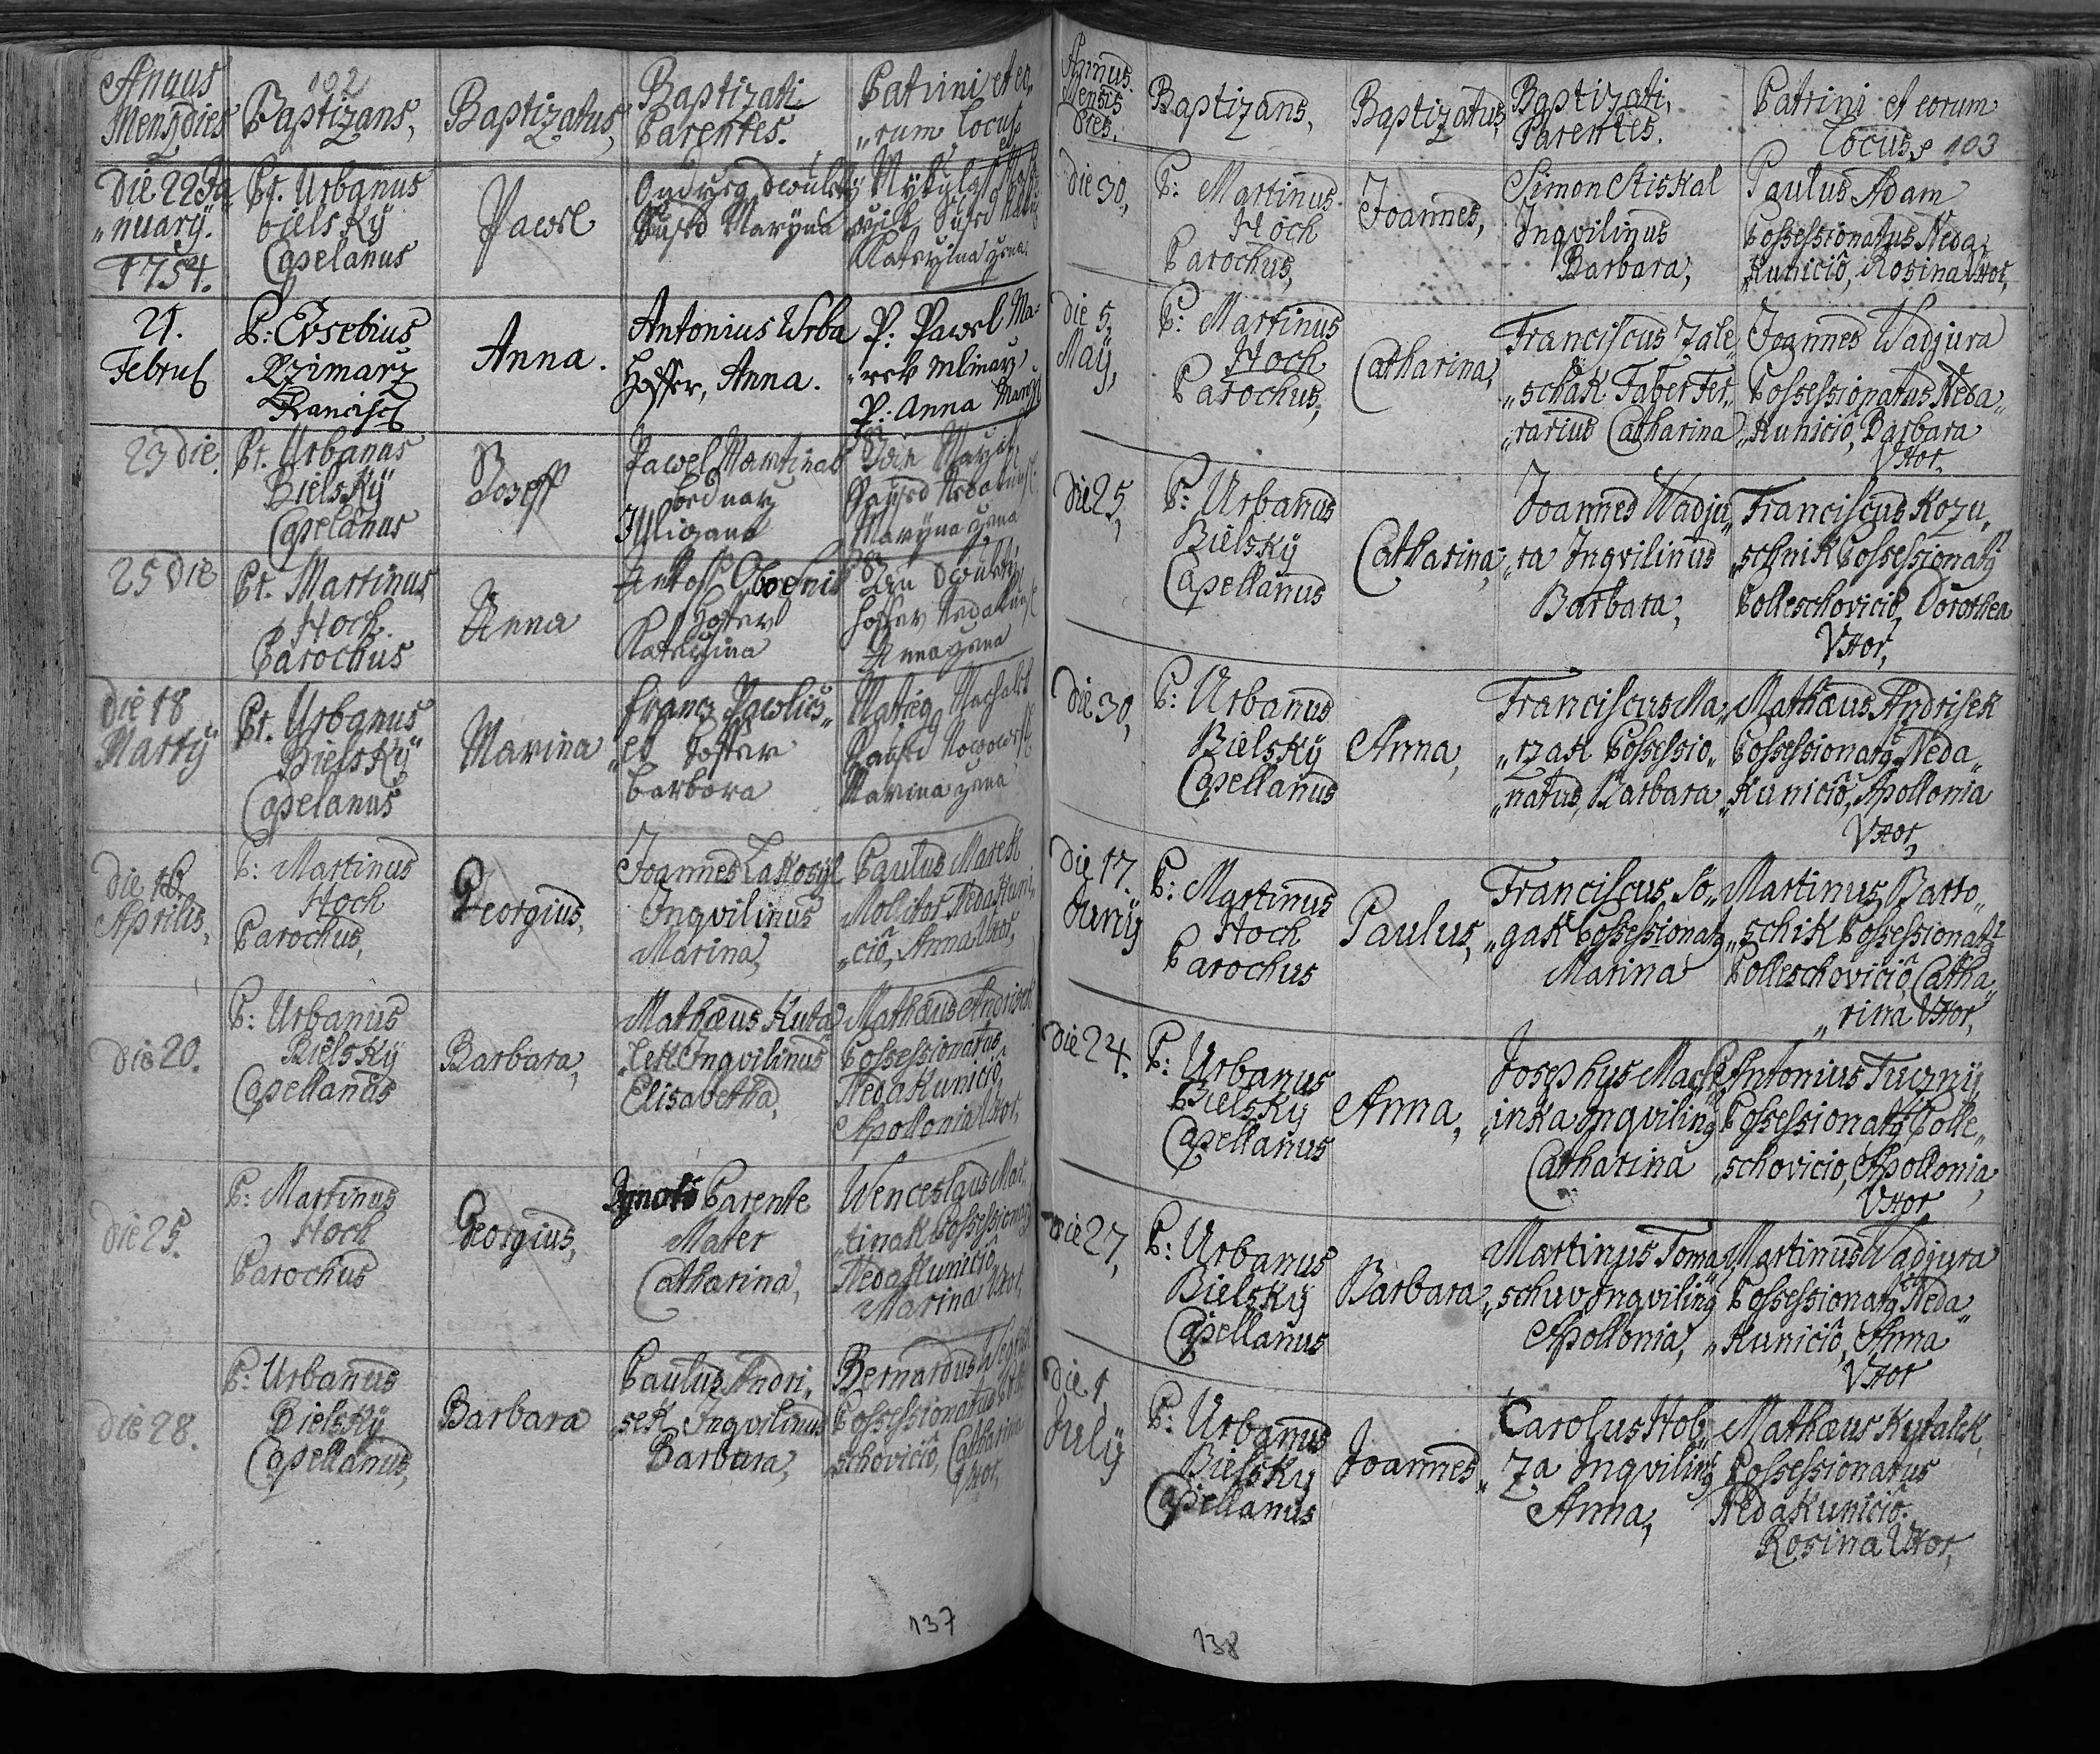 102
Annus
Mens, dies
Baptizans,
Baptizatus,
Baptizati
Parentes.
Patrini et eo,
„rum locus
Die 22 Ja
„nuarÿ.
1754.
Pt. Urbanus
bielskÿ
Capelanus
Pawel
Marÿna
Katerzina zena
21.
Febru
P: Evsebius
Rzimarz
Francisc
Anna.
Antonius Wrba
Hoffer, Anna.
P: Pawel Ma=
„rek Mlinarz
P: Anna
23 die
Pt. Urbanus
Bielskÿ
Capelanus
Joseff
Pawel Martinak
bednarz
Juliana
Jan
Marÿna zena
25 die
Pt. Martinus
Hoch
Parochus
Anna
hoffer
Katerzina
Jan
hoffer
Anna zena
die 18
Martÿ
Pt. Urbanus
Bielskÿ
Capelanus
Marina
Franz Pawlicz„
„ek hoffer
barbora
Matieg
Marina zena
die 16.
Aprilis,
P: Martinus
Hoch
Parochus,
Georgius,
Joannes Lakosÿl
Inqvilinus
Marina,
Paulus Marek
Molitor Nedakuni„
„ciô, Anna Uxor,
die 20.
P: Urbanus
Bielskÿ
Capellanus
Barbara,
Mathæus Kuta
„lek Inqvilinus
Elisabetha,
Mathæus Andrisek
Possessionatus
Nedakuniciô
Apollonia Uxor,
die 25.
P: Martinus
Hoch
Parochus
Georgius,
Parente
Mater
Catharina,
Wenceslaus Mar„
„tinak Possessionatg
Nedakuniciô
Marina Uxor,
die 28.
P: Urbanus
Bielskÿ
Capellanus,
Barbara
Paulus Andri„
„sek Inqvilinus
Barbara,
Bernardus
Possessionatus Polle
„schoviciô, Catharina
Uxor,
137
Annus.
Mensis
Dies.
Baptizans,
Baptizatus,
Baptizati,
Parentes.
Patrini et eorum
Locus, 103
die 30,
P: Martinus
Hoch
Parochus,
Joannes,
Simon Stiskal
Inqvilinus
Barbara,
Paulus Adam
Possessionatus Neda„
„kuniciô, Rosina Uxor,
die 5,
Maÿ,
P: Martinus
Hoch
Parochus,
Catharina,
Franciscus Zale„
„schak Faber Fer„
„rarius Catharina
Joannes Wadjura
Possessionatus Neda„
„kuniciô, Barbara
Uxor,
die 25,
P: Urbanus
Bielskÿ
Capellanus
Catharina,
Joannes Wadju„
„ra Inqvilinus
Barbara,
Franciscus Kozu„
„schnik Possessionatg
Polleschoviciô, Dorothea
Uxor,
die 30,
P: Urbanus
Bielskÿ
Capellanus
Anna,
Franciscus Ma„
„rzak Possessio„
„natus, Barbara
Mathæus Andrisek
Possessionatg Neda„
„kuniciô, Apollonia
Uxor,
die 17.
Junÿ
P: Martinus
Hoch
Parochus
Paulus,
Franciscus So„
„gak Possessionatg
Marina
Martinus Barto„
„schik Possessionatg
Polleschoviciô, Catha„
„rina Uxor,
die 24.
P: Urbanus
Bielskÿ
Capellanus
Anna,
Josephus Mach„
„inka Inqviling
Catharina
Antonius Tucznÿ
Possessionatg Polle„
„schovicio, Apollonia,
Uxor
die 27,
P: Urbanus
Bielskÿ
Capellanus
Barbara
Martinus Toma„
„schuv Inqviling
Apollonia,
Martinus Wadjura
Possessionatg Neda„
„kuniciô, Anna
Uxor
die 1,
Julÿ
P: Urbanus
Bielskÿ
Capellanus
Joannes
Carolus Hob„
„za Inqviling
Anna,
Mathæus Kutalek
Possessionatus
Nedakuniciô.
Rosina Uxor,
138